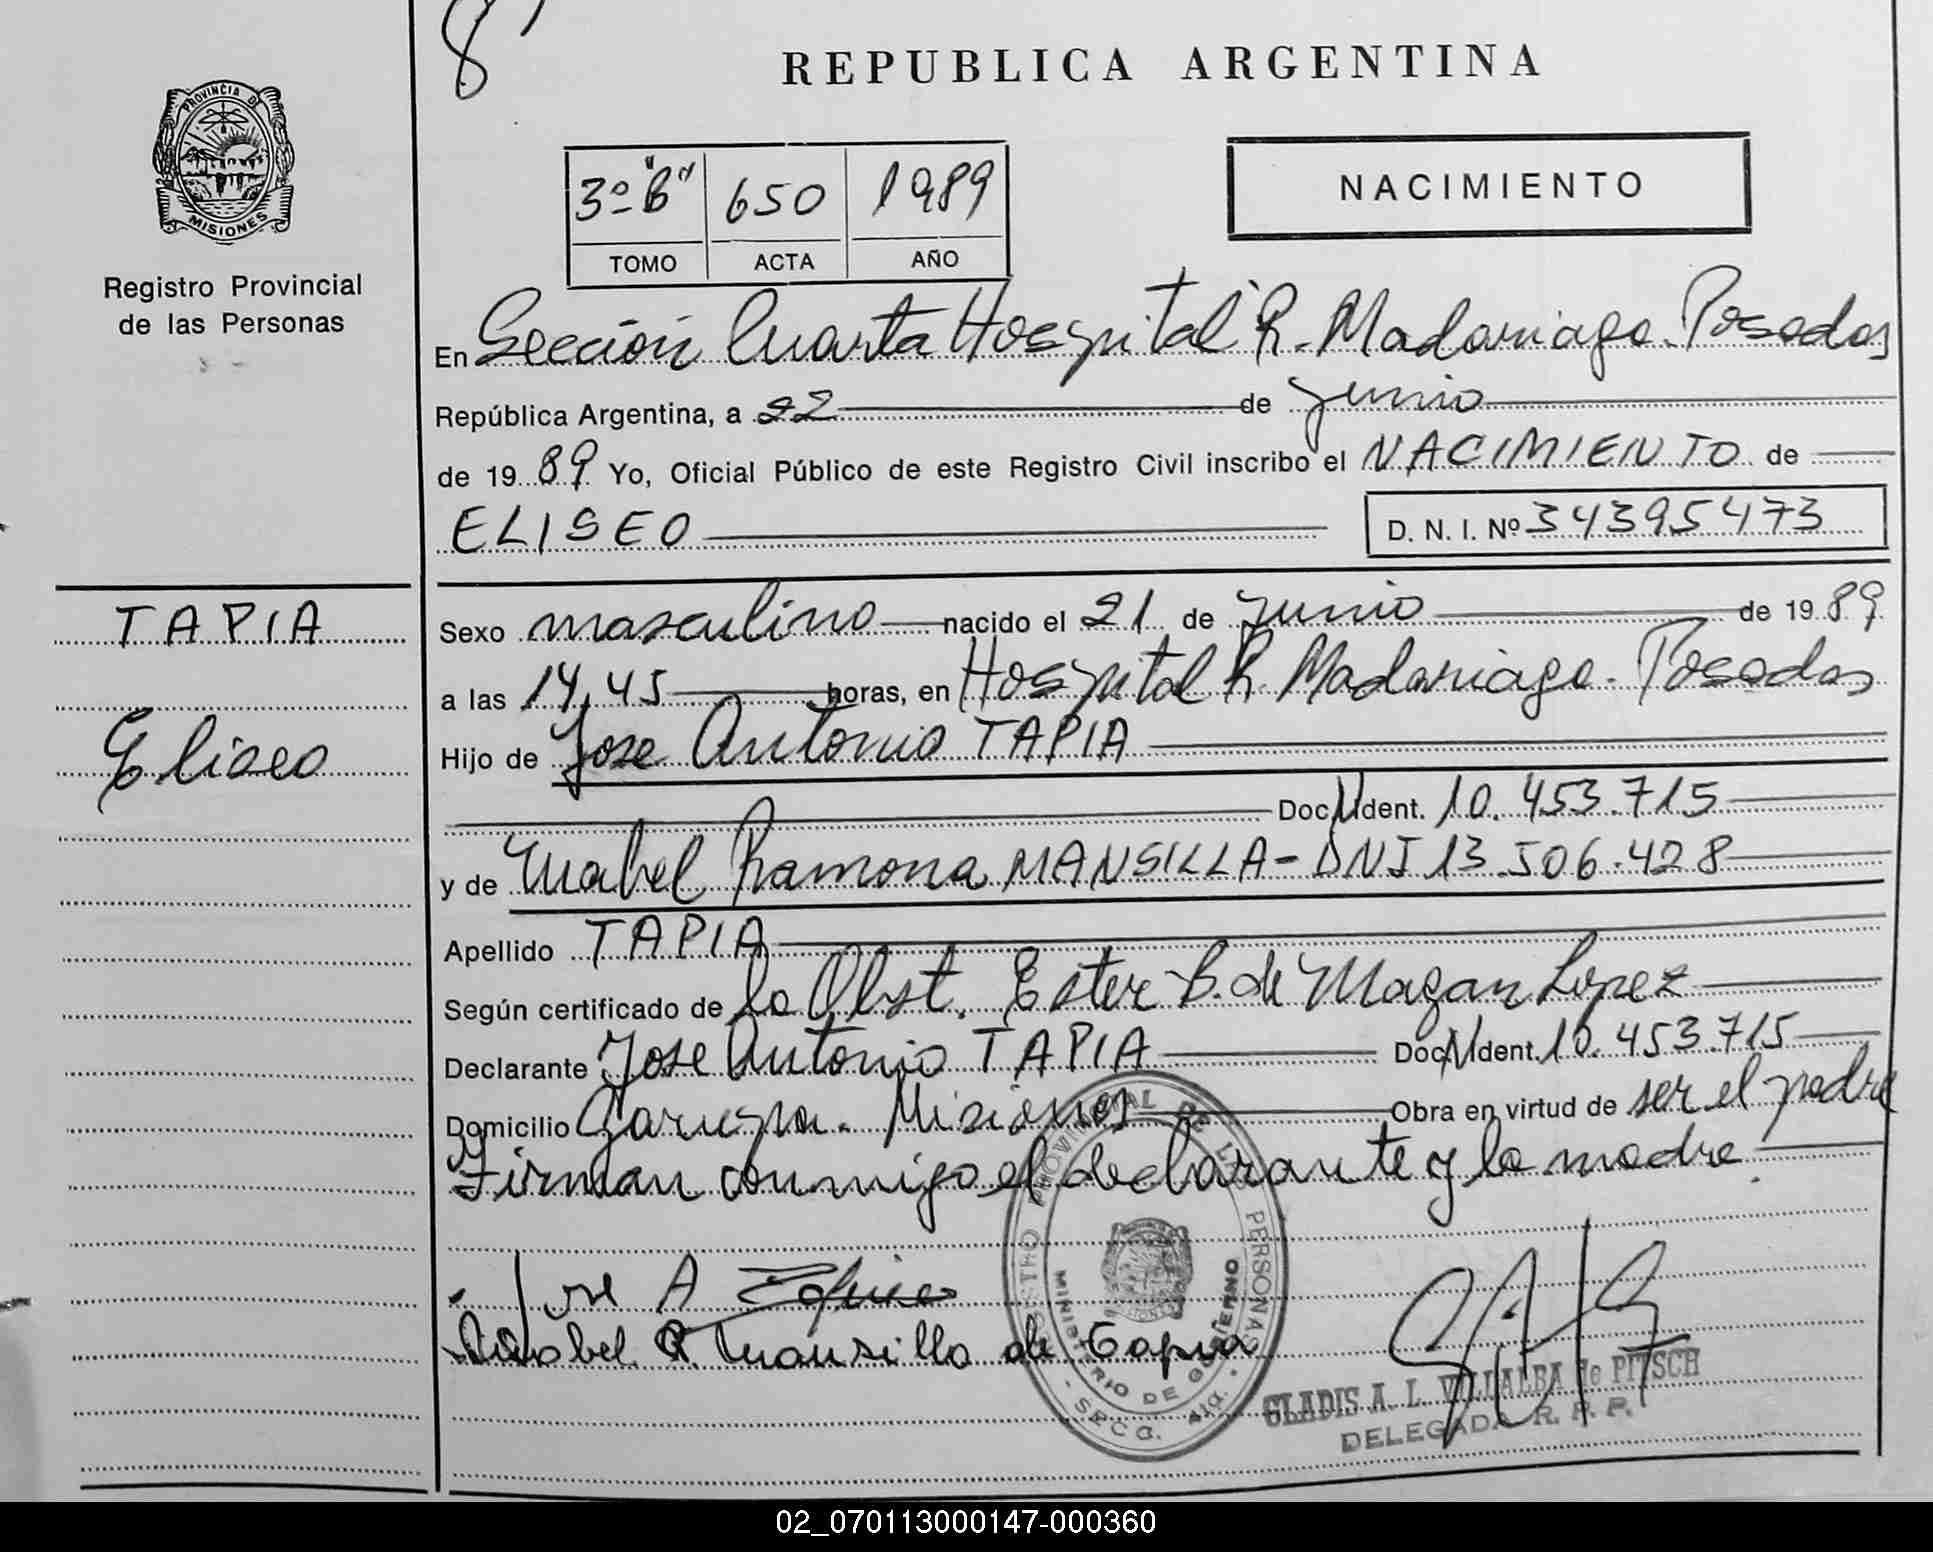 8
REPUBLICA ARGENTINA
PROVINCIA DE
MISIONES
Registro Provincial
de las Personas
3º "B" 650 1989
TOMO ACTA AÑO
NACIMIENTO
En Sección Cuarta Hospital R. Madariaga. Posadas
República Argentina, a 22 de junio
de 19 89 Yo, Oficial Público de este Registro Civil inscribo el NACIMIENTO de
ELISEO D. N. I. Nº 34395473
TAPIA
Eliseo
Sexo masculino nacido el 21 de junio de 19 89
a las 14,45 horas, en Hospital R. Madariaga. Posadas
Hijo de Jose Antonio TAPIA
Doc. Ident. 10.453.715
y de Mabel Ramona MANSILLA - DNI 13.506.428
Apellido TAPIA
Según certificado de la Obst. Ester B. de Magan Lopez
Declarante Jose Antonio TAPIA Doc. Ident. 10.453.715
Domicilio Garupa. Misiones Obra en virtud de ser el padre
Firman conmigo el declarante y la madre.
Jose A
Mabel R Mansilla de Tapia
REGISTRO PROVINCIAL DE LAS PERSONAS
MINISTERIO DE GOBIERNO
- SECC. 4ta. -
GLADIS A. L. VILLALBA de PITSCH
DELEGADA R. P. P.
02_070113000147-000360